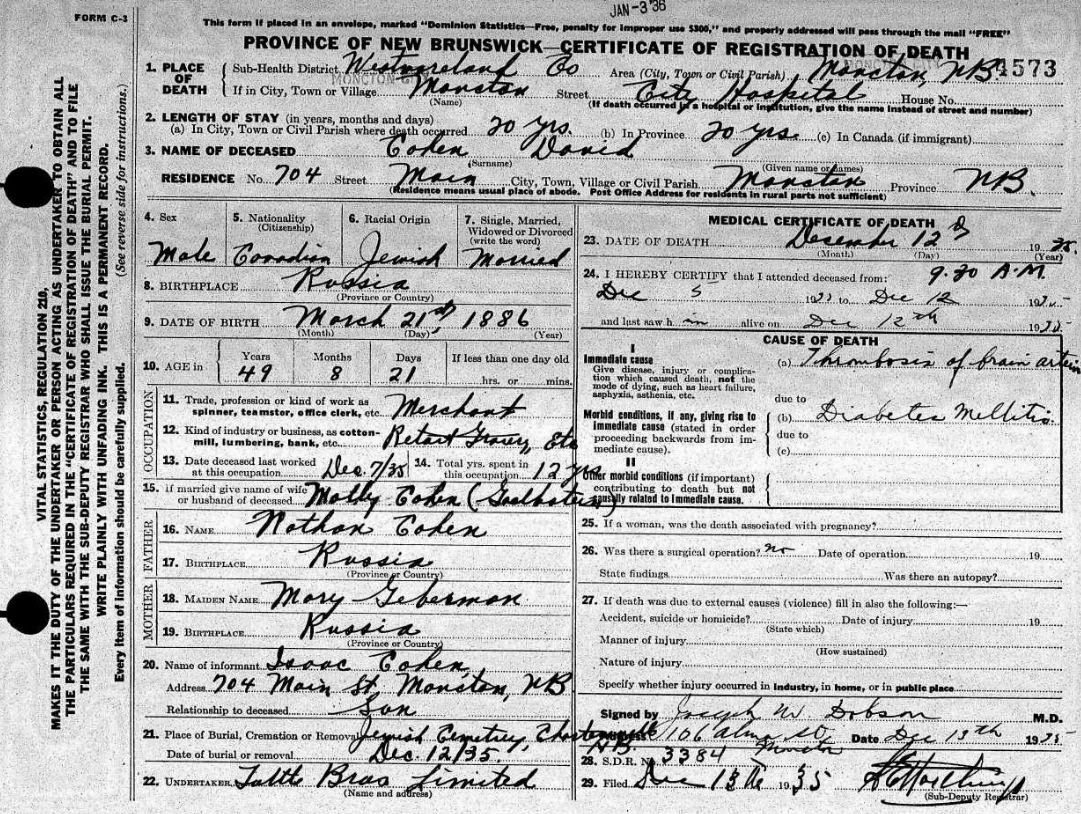 FORM C-3
JAN -3 '36
This form if placed in an envelope, marked "Dominion Statistics—Free, penalty for improper use $300," and properly addressed will pass through the mail "FREE"
PROVINCE OF NEW BRUNSWICK—CERTIFICATE OF REGISTRATION OF DEATH
4573
1. PLACE OF DEATH
Sub-Health District Westmoreland Co Area (City, Town or Civil Parish) Moncton, NB
If in City, Town or Village Moncton Street City Hospital House No.
(Name) (If death occurred in a hospital or institution, give the name instead of street and number)
2. LENGTH OF STAY (in years, months and days)
(a) In City, Town or Civil Parish where death occurred 20 yrs. (b) In Province 20 yrs. (c) In Canada (if immigrant)
3. NAME OF DECEASED Cohen David
(Surname) (Given name or names)
RESIDENCE No. 704 Street Main City, Town, Village or Civil Parish Moncton Province NB.
(Residence means usual place of abode. Post Office Address for residents in rural parts not sufficient)
VITAL STATISTICS, REGULATION 210,
MAKES IT THE DUTY OF THE UNDERTAKER OR PERSON ACTING AS UNDERTAKER TO OBTAIN ALL
THE PARTICULARS REQUIRED IN THE "CERTIFICATE OF REGISTRATION OF DEATH" AND TO FILE
THE SAME WITH THE SUB-DEPUTY REGISTRAR WHO SHALL ISSUE THE BURIAL PERMIT.
WRITE PLAINLY WITH UNFADING INK. THIS IS A PERMANENT RECORD.
Every item of information should be carefully supplied. (See reverse side for instructions.)
4. Sex 5. Nationality (Citizenship) 6. Racial Origin 7. Single, Married, Widowed or Divorced (write the word)
Male Canadian Jewish Married
8. BIRTHPLACE Russia
(Province or Country)
9. DATE OF BIRTH March 21st, 1886
(Month) (Day) (Year)
10. AGE in Years Months Days If less than one day old
49 8 21 hrs. or mins.
OCCUPATION
11. Trade, profession or kind of work as spinner, teamster, office clerk, etc. Merchant
12. Kind of industry or business, as cotton-mill, lumbering, bank, etc. Retail Grocery, Etc
13. Date deceased last worked at this occupation Dec. 7/35 14. Total yrs. spent in this occupation 12 yrs
15. If married give name of wife or husband of deceased Molly Cohen
FATHER
16. NAME Nathan Cohen
17. BIRTHPLACE Russia
(Province or Country)
MOTHER
18. MAIDEN NAME Mary Geberman
19. BIRTHPLACE Russia
(Province or Country)
20. Name of informant Isaac Cohen
Address 704 Main St, Moncton, NB
Relationship to deceased Son
21. Place of Burial, Cremation or Removal Jewish Cemetery,
Date of burial or removal Dec. 12/35. N.B.
22. UNDERTAKER Tuttle Bros Limited
(Name and address)
MEDICAL CERTIFICATE OF DEATH
23. DATE OF DEATH December 12th 1935.
(Month) (Day) (Year)
24. I HEREBY CERTIFY that I attended deceased from: 9.30 A.M.
Dec 5 1935 to Dec 12 1935
and last saw him alive on Dec 12th 1935
CAUSE OF DEATH
I
Immediate cause
Give disease, injury or complication which caused death, not the mode of dying, such as heart failure, asphyxia, asthenia, etc.
(a) Thrombosis of brain artery
due to
Morbid conditions, if any, giving rise to immediate cause (stated in order proceeding backwards from immediate cause).
(b) Diabetes Mellitis
due to
(c)
II
Other morbid conditions (if important) contributing to death but not causally related to immediate cause.
25. If a woman, was the death associated with pregnancy?
26. Was there a surgical operation? no Date of operation 19
State findings Was there an autopsy?
27. If death was due to external causes (violence) fill in also the following:—
Accident, suicide or homicide? Date of injury 19
(State which)
Manner of injury
(How sustained)
Nature of injury
Specify whether injury occurred in industry, in home, or in public place
Signed by Joseph M Dobson M.D.
106 Alma St, Moncton Date Dec 13th 1935
28. S.D.R. No. 3384
29. Filed Dec 13th 1935
(Sub-Deputy Registrar)